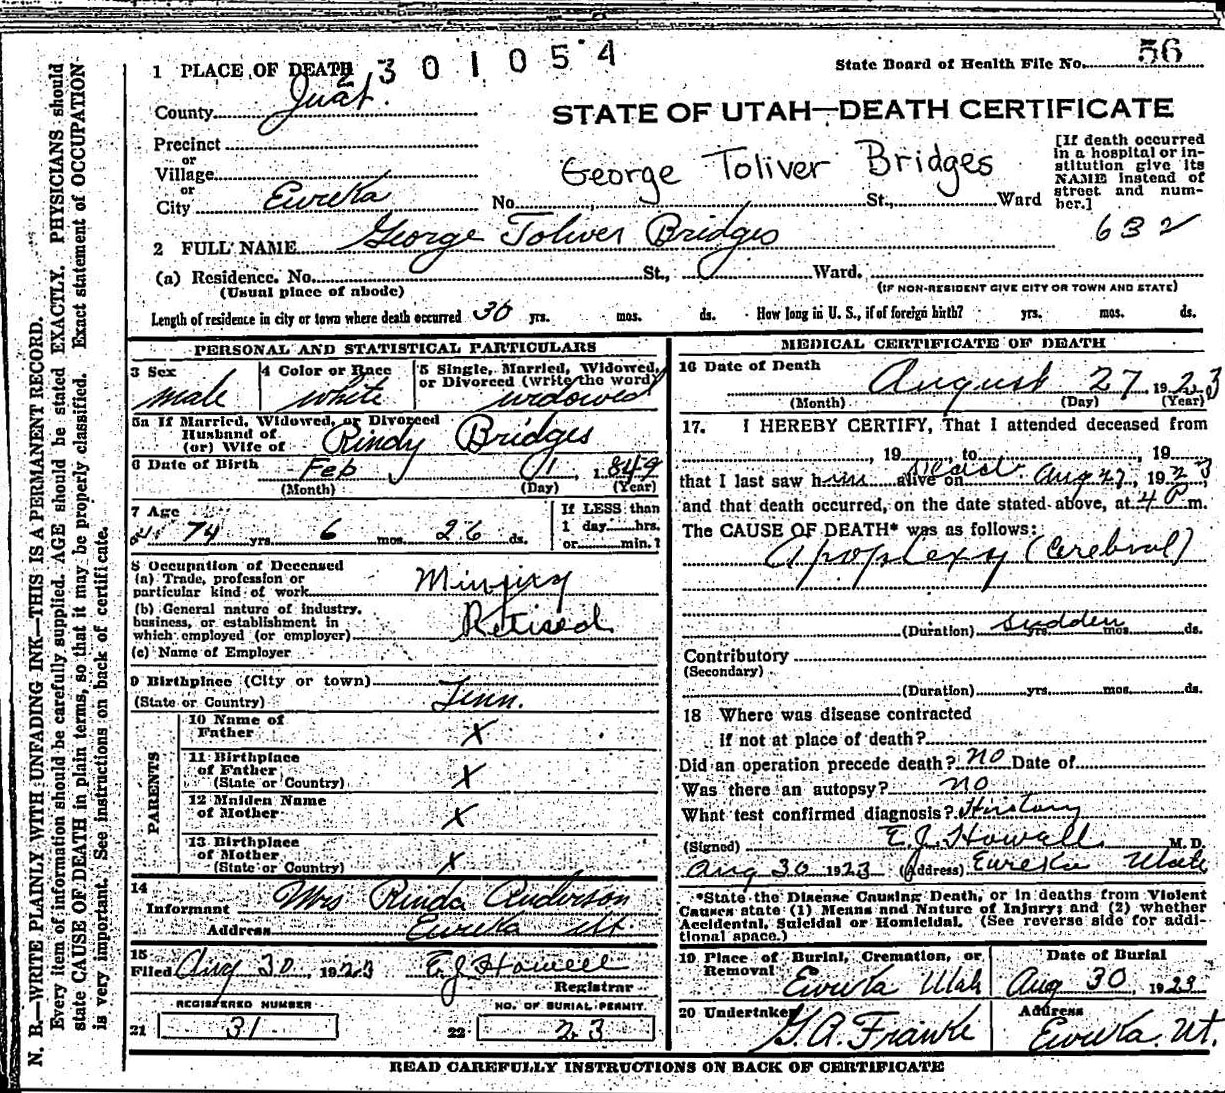 2301054
56
1 PLACE OF DEATH
State Board of Health File No.
County Juab.
STATE OF UTAH—DEATH CERTIFICATE
Precinct
or
Village
or
City Eureka
George Toliver Bridges
No. St., Ward
[If death occurred in a hospital or institution give its NAME instead of street and number.]
632
2 FULL NAME George Toliver Bridges
(a) Residence. No. St., Ward.
(Usual place of abode)
(IF NON-RESIDENT GIVE CITY OR TOWN AND STATE)
Length of residence in city or town where death occurred 30 yrs. mos. ds. How long in U. S., if of foreign birth? yrs. mos. ds.
PERSONAL AND STATISTICAL PARTICULARS
3 Sex
male
4 Color or Race
white
5 Single, Married, Widowed, or Divorced (write the word)
widowed
5a If Married, Widowed, or Divorced
Husband of
(or) Wife of Rindy Bridges
6 Date of Birth Feb 1 1849
(Month) (Day) (Year)
7 Age
74 yrs. 6 mos. 26 ds.
If LESS than
1 day hrs.
or min.?
8 Occupation of Deceased
(a) Trade, profession or
particular kind of work Mining
(b) General nature of industry,
business, or establishment in
which employed (or employer) Retired
(c) Name of Employer
9 Birthplace (City or town) Tenn.
(State or Country)
PARENTS
10 Name of
Father X
11 Birthplace
of Father X
(State or Country)
12 Maiden Name
of Mother X
13 Birthplace
of Mother X
(State or Country)
14
Informant Mrs Rinda Anderson
Address Eureka Ut.
15
Filed Aug 30, 1923 E. J. Howell
Registrar
REGISTERED NUMBER
21 31
NO. OF BURIAL PERMIT
22 23
MEDICAL CERTIFICATE OF DEATH
16 Date of Death August 27, 1923
(Month) (Day) (Year)
17. I HEREBY CERTIFY, That I attended deceased from
, 19 , to , 19
that I last saw him alive on dead Aug 27, 1923,
and that death occurred, on the date stated above, at 4 P m.
The CAUSE OF DEATH* was as follows:
Apoplexy (Cerebral)
(Duration) sudden yrs. mos. ds.
Contributory
(Secondary)
(Duration) yrs. mos. ds.
18 Where was disease contracted
if not at place of death?
Did an operation precede death? no Date of
Was there an autopsy? no
What test confirmed diagnosis? History
(Signed) E. J. Howell M. D.
Aug 30 1923 (Address) Eureka Utah
*State the Disease Causing Death, or in deaths from Violent
Causes state (1) Means and Nature of Injury; and (2) whether
Accidental, Suicidal or Homicidal. (See reverse side for addi-
tional space.)
19 Place of Burial, Cremation, or
Removal
Eureka Utah
Date of Burial
Aug 30, 1923
20 Undertaker
G. A. Franke
Address
Eureka Ut.
READ CAREFULLY INSTRUCTIONS ON BACK OF CERTIFICATE
N. B.—WRITE PLAINLY WITH UNFADING INK—THIS IS A PERMANENT RECORD.
Every item of information should be carefully supplied. AGE should be stated EXACTLY. PHYSICIANS should
state CAUSE OF DEATH in plain terms, so that it may be properly classified. Exact statement of OCCUPATION
is very important. See instructions on back of certificate.